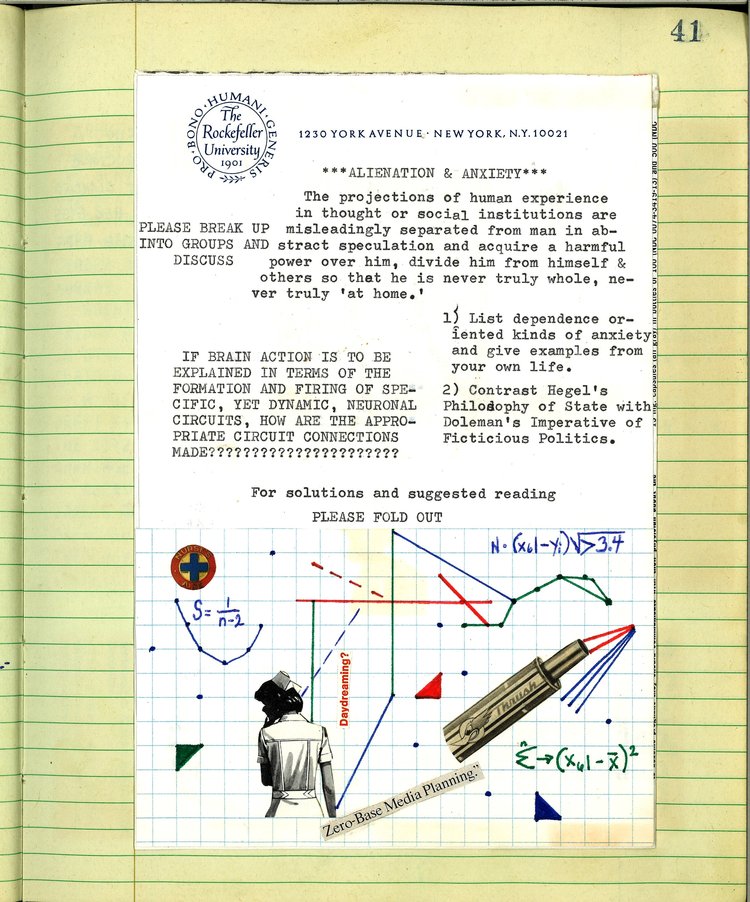 41
PRO·BONO·HUMANI·GENERIS
The
Rockefeller
University
1901
1230 YORK AVENUE · NEW YORK, N.Y. 10021
***ALIENATION & ANXIETY***
PLEASE BREAK UP
INTO GROUPS AND
DISCUSS
The projections of human experience
in thought or social institutions are
misleadingly separated from man in ab-
stract speculation and acquire a harmful
power over him, divide him from himself &
others so that he is never truly whole, ne-
ver truly 'at home.'
IF BRAIN ACTION IS TO BE
EXPLAINED IN TERMS OF THE
FORMATION AND FIRING OF SPE-
CIFIC, YET DYNAMIC, NEURONAL
CIRCUITS, HOW ARE THE APPRO-
PRIATE CIRCUIT CONNECTIONS
MADE??????????????????????
1) List dependence or-
iented kinds of anxiety
and give examples from
your own life.
2) Contrast Hegel's
Philosophy of State with
Doleman's Imperative of
Ficticious Politics.
For solutions and suggested reading
PLEASE FOLD OUT
N·(x61-yi)√>3.4
S=1/n-2
Daydreaming?
Thrush
n
Σ→(x61-x̄)²
Zero-Base Media Planning."